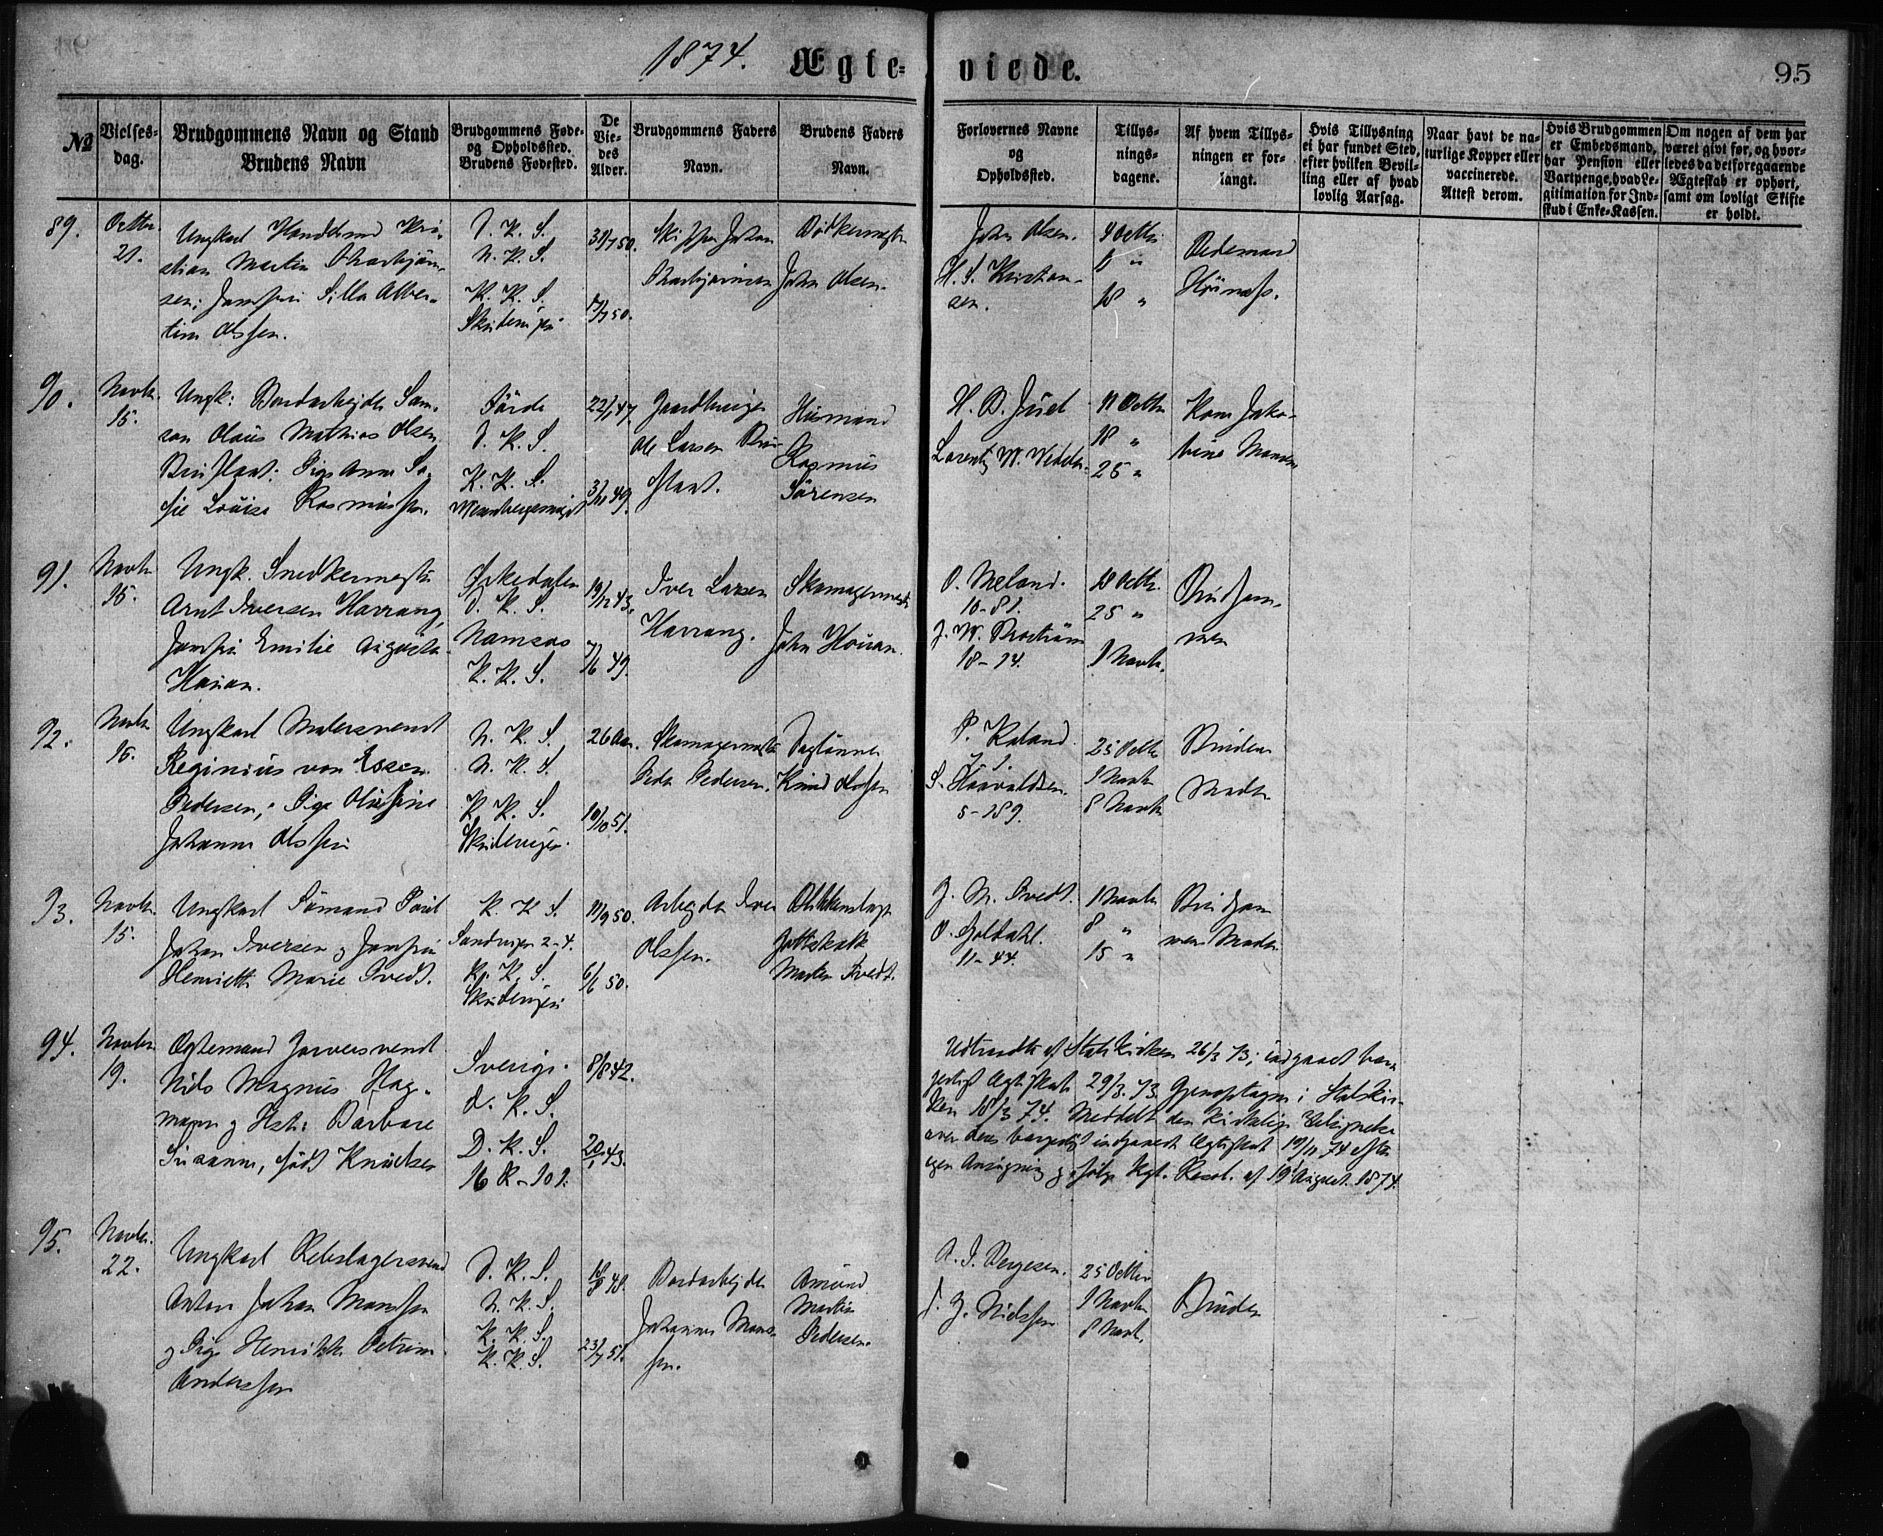 1874. Ægte-
viede.
95
№
Vielses-
dag.
Brudgommens Navn og Stand
Brudens Navn
Brudgommens Føde-
og Opholdssted.
Brudens Fødested.
De
Vie-
des
Alder.
Brudgommens Faders
Navn.
Brudens Faders
Navn.
Forlovernes Navne
og
Opholdssted.
Tillys-
nings-
dagene.
Af hvem Tillys-
ningen er for-
langt.
Hvis Tillysning
ei har fundet Sted,
efter hvilken Bevil-
ling eller af hvad
lovlig Aarsag.
Naar havt de na-
turlige Kopper eller
vaccinerede.
Attest derom.
Hvis Brudgommen
er Embedsmand,
har Pension eller
Vartpenge, hvad Le-
gitimation for Ind-
skud i Enke-Kassen.
Om nogen af dem har
været givt før, og hvor-
ledes da det foregaaende
Ægteskab er ophørt,
samt om lovligt Skifte
er holdt.
89.
Octbr.
21.
Ungkarl
stian Martin
sen; Jomfru Silla Alber-
tine Olssen.
D. K. S.
N. K. S.
K. K. S.
31/7 50.
17/7 50.
Skipper Johan
Bødkermester
John Olsen.
John Olsen.
H. S. Kristian-
sen.
4 Octbr.
18 "
90.
Novbr.
15.
Ungk: Bordarbejder Sam-
son Olaus Mathias Olsen
Pige Anne So-
fie Louise Rasmussen.
Førde
D. K. S.
K. K. S.
22/1 47
Gaardbruger
Ole Larsen
Husmand
Rasmus
Sørensen
H. B. Juel
Lorentz W.
11 Octbr.
18 "
25 "
Hans Jako-
bine
91.
Novbr.
15.
Ungk. Snedkermester
Arnt Iversen Harrang,
Jomfru Emilie Augusta
Houan.
Ørkedalen
D. K. S.
Namsos
K. K. S.
19/12 43.
7/6 49.
Iver Larsen
Harrang.
Skomagermester
John Houan.
O. Meland.
10-81.
J. W.
18-14.
18 Octbr.
25 "
1 Novbr.
Brudgom-
men
92.
Novbr.
15.
Ungkarl Malersvend
Reginius von Essen
Pedersen; Pige
Johanne Olssen
N. K. S.
N. K. S.
K. K. S.
26 Aar.
10/10 51.
Skomagermester
Peder Pedersen.
Daglønner
Knud Olssen
P. Kaland
S. Haavaldsen.
5-189.
25 Octbr
1 Novbr
8 Novbr
Bruden
Moder
93.
Novbr.
15.
Ungkarl Sømand Poul
Johan Iversen og Jomfru
Henriette Marie Tvedt.
K. K. S.
Sandvigen 2-4.
K. K. S.
11/9 50.
6/6 50.
Arbejder Iver
Olssen.
Blikkenslager
Gottskalk
Morten Tvedt.
J. M. Tvedt.
O. Goldahl.
11-44.
1 Novbr
8 "
15 "
Brudgom
men Moder
94.
Novbr.
19.
Ægtemand Garversvend
Nils Magnus Hag-
mann og Hst: Barbare
Susanne, født Knudsen
Sverige.
D. K. S.
D. K. S.
16 R-101.
8/8 42.
20/1 43.
Udtraadte af Statskirken 26/3 73; indgaaet bor-
gerligt Ægteskab 29/3. 73. Gjenoptagen i Statskir-
ken 18/3 74. Meddelt den kirkelige Velsignelse
over deres borgerligt indgaaede Ægteskab 19/11 74 efter
egen Ansøgning og ifølge Kgl. Resol. af 19 August 1874.
95.
Novbr.
22.
Ungkarl Rebslagersvend
Anton Johan Monssen
og Pige Henrikke Petrine
Anderssen
D. K. S.
N. K. S.
K. K. S.
K. K. S.
23/7 51.
Bordarbejder
Johannes Mons-
sen.
Amund
Martin
Pedersen.
J. Nielssen
25 Octbr
1 Novbr
8 Novbr.
Bruden